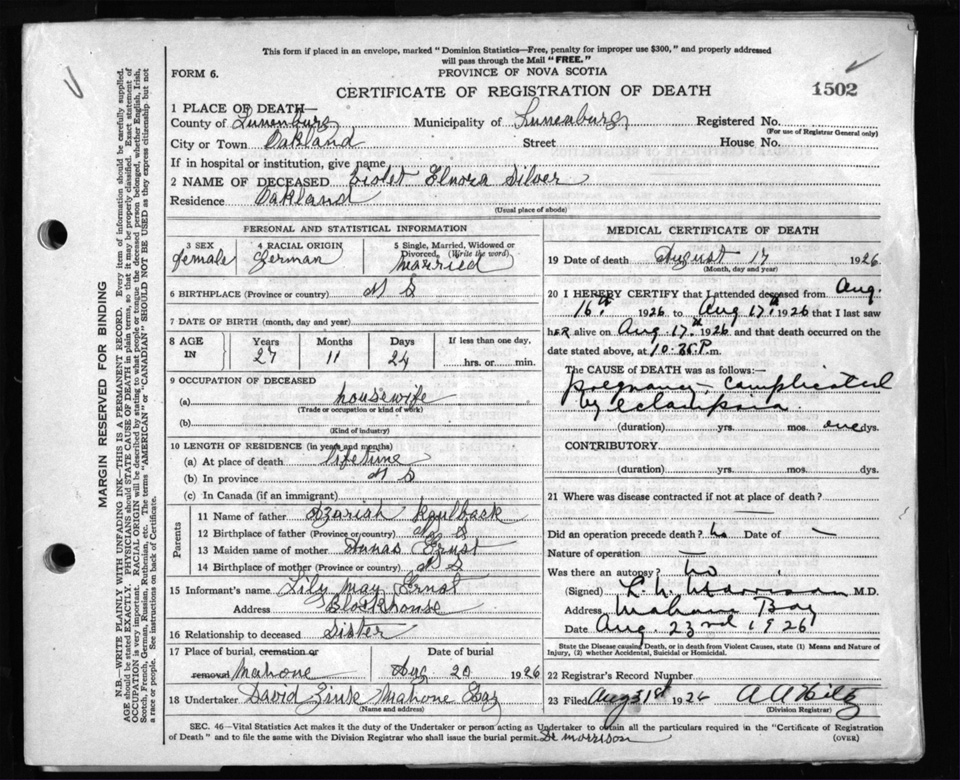 This form if placed in an envelope, marked "Dominion Statistics—Free, penalty for improper use $300," and properly addressed
will pass through the Mail "FREE."
FORM 6.
PROVINCE OF NOVA SCOTIA
CERTIFICATE OF REGISTRATION OF DEATH
1502
1 PLACE OF DEATH—
County of Lunenburg Municipality of Lunenburg Registered No.
(For use of Registrar General only)
City or Town Oakland Street House No.
If in hospital or institution, give name
2 NAME OF DECEASED Violet Elnora Silver
Residence Oakland
(Usual place of abode)
PERSONAL AND STATISTICAL INFORMATION
3 SEX 4 RACIAL ORIGIN 5 Single, Married, Widowed or
Divorced. (Write the word)
female German married
6 BIRTHPLACE (Province or country) N S
7 DATE OF BIRTH (month, day and year)
8 AGE IN Years Months Days If less than one day,
27 11 24 hrs. or min.
9 OCCUPATION OF DECEASED
(a) housewife
(Trade or occupation or kind of work)
(b)
(Kind of industry)
10 LENGTH OF RESIDENCE (in years and months)
(a) At place of death lifetime
(b) In province N S
(c) In Canada (if an immigrant)
Parents
11 Name of father Azariah Kaulback
12 Birthplace of father (Province or country) N S
13 Maiden name of mother Ernst
14 Birthplace of mother (Province or country) N S
15 Informant's name Lily May Ernst
Address Blockhouse
16 Relationship to deceased Sister
17 Place of burial, cremation or removal Date of burial
Mahone Aug 20 1926
18 Undertaker David Zinke Mahone Bay
(Name and address)
MEDICAL CERTIFICATE OF DEATH
19 Date of death August 17 1926
(Month, day and year)
20 I HEREBY CERTIFY that I attended deceased from Aug.
16th 1926 to Aug 17th 1926 that I last saw
her alive on Aug. 17th 1926 and that death occurred on the
date stated above, at 10.35 P.m.
The CAUSE OF DEATH was as follows:
pregnancy – complicated
by eclampsia.
(duration) yrs. mos. one dys.
CONTRIBUTORY
(duration) yrs. mos. dys.
21 Where was disease contracted if not at place of death?
Did an operation precede death? no Date of —
Nature of operation —
Was there an autopsy? no
(Signed) M.D.
Address Mahone Bay
Date Aug. 23rd 1926
State the Disease causing Death, or in death from Violent Causes, state (1) Means and Nature of
Injury, (2) whether Accidental, Suicidal or Homicidal.
22 Registrar's Record Number
23 Filed Aug 31st 1926 A A Hiltz
(Division Registrar)
SEC. 46—Vital Statistics Act makes it the duty of the Undertaker or person acting as Undertaker to obtain all the particulars required in the "Certificate of Registration
of Death" and to file the same with the Division Registrar who shall issue the burial permit. Dr Morrison
(OVER)
MARGIN RESERVED FOR BINDING
N.B.—WRITE PLAINLY WITH UNFADING INK—THIS IS A PERMANENT RECORD. Every item of information should be carefully supplied.
AGE should be stated EXACTLY. PHYSICIANS should STATE CAUSE OF DEATH in plain terms, so that it may be properly classified. Exact statement of
OCCUPATION is very important. RACIAL ORIGIN will be described by stating to what people or tongue the deceased person belonged, whether English, Irish,
Scotch, French, German, Russian, Ruthenian, etc. The terms "AMERICAN" or "CANADIAN" SHOULD NOT BE USED as they express citizenship but not
a race or people. See instructions on back of Certificate.